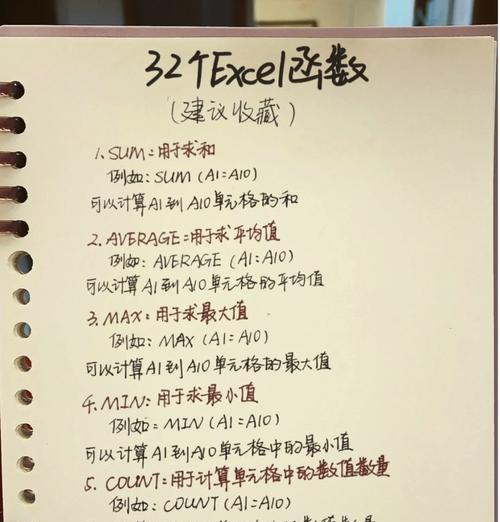 32个Excel函数
(建议收藏)
1.SUM:用于求和
例如:SUM(A1:A10)
可以计算A1到A10单元格的和
2.AVERAGE:用于求平均值
例如:AVERAGE(A1:A10)
可以计算A1到A10单元格的平均值
3.MAX:用于求最大值
例如:MAX(A1:A10)
可以计算A1到A10单元格的最大值
4.MIN:用于求最小值
例如:MIN(A1:A10)
可以计算A1到A10单元格中的最小值
5.COUNT:用于计算单元格中的数值数量
例如:COUNT(A1:A10)